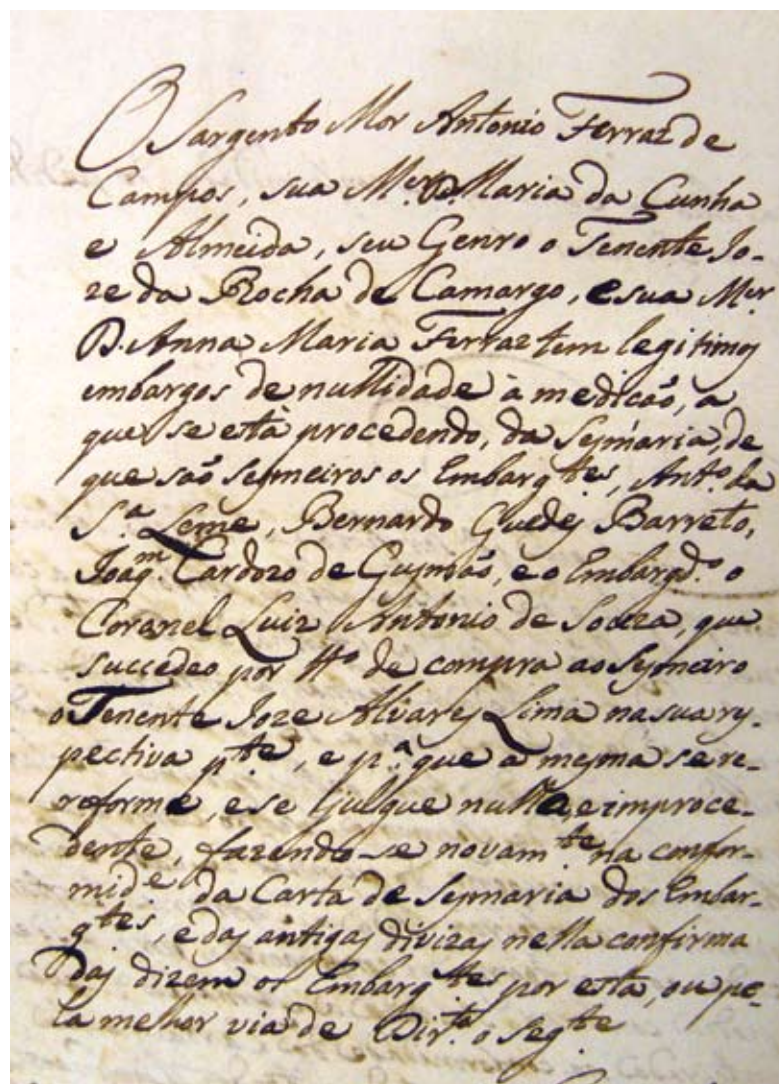 O Sargento Mor Antonio Ferraz de
Campos, sua M.er D. Maria da Cunha
e Almeida, seu Genro o Tenente Jo-
ze da Rocha de Camargo, e sua M.er
D. Anna Maria Ferraz tem legitimos
embargos de nullidade à medicaõ, a
que se està procedendo, da Sesmaria, de
que saõ sesmeiros os Embarg.tes, Ant.o da
S.a Leme, Bernardo Guedes Barreto,
Joaq.m Cardozo de Gusmaõ, e o Embargd.o o
Coronel Luiz Antonio de Souza, que
succedeo por tt.o de compra ao Sesmeiro
o Tenente Joze Alvares Lima na sua res-
pectiva p.te, e p.a que a mesma se re-
reforme, e se julgue nulla, e improce-
dente, fazendo-se novam.te na confor-
mid.e da Carta de Sesmaria dos Embar-
g.tes, e das antigas divizas nella confirma
das dizem os Embarg.tes por esta, ou pe-
la melhor via de Dir.to o seg.te